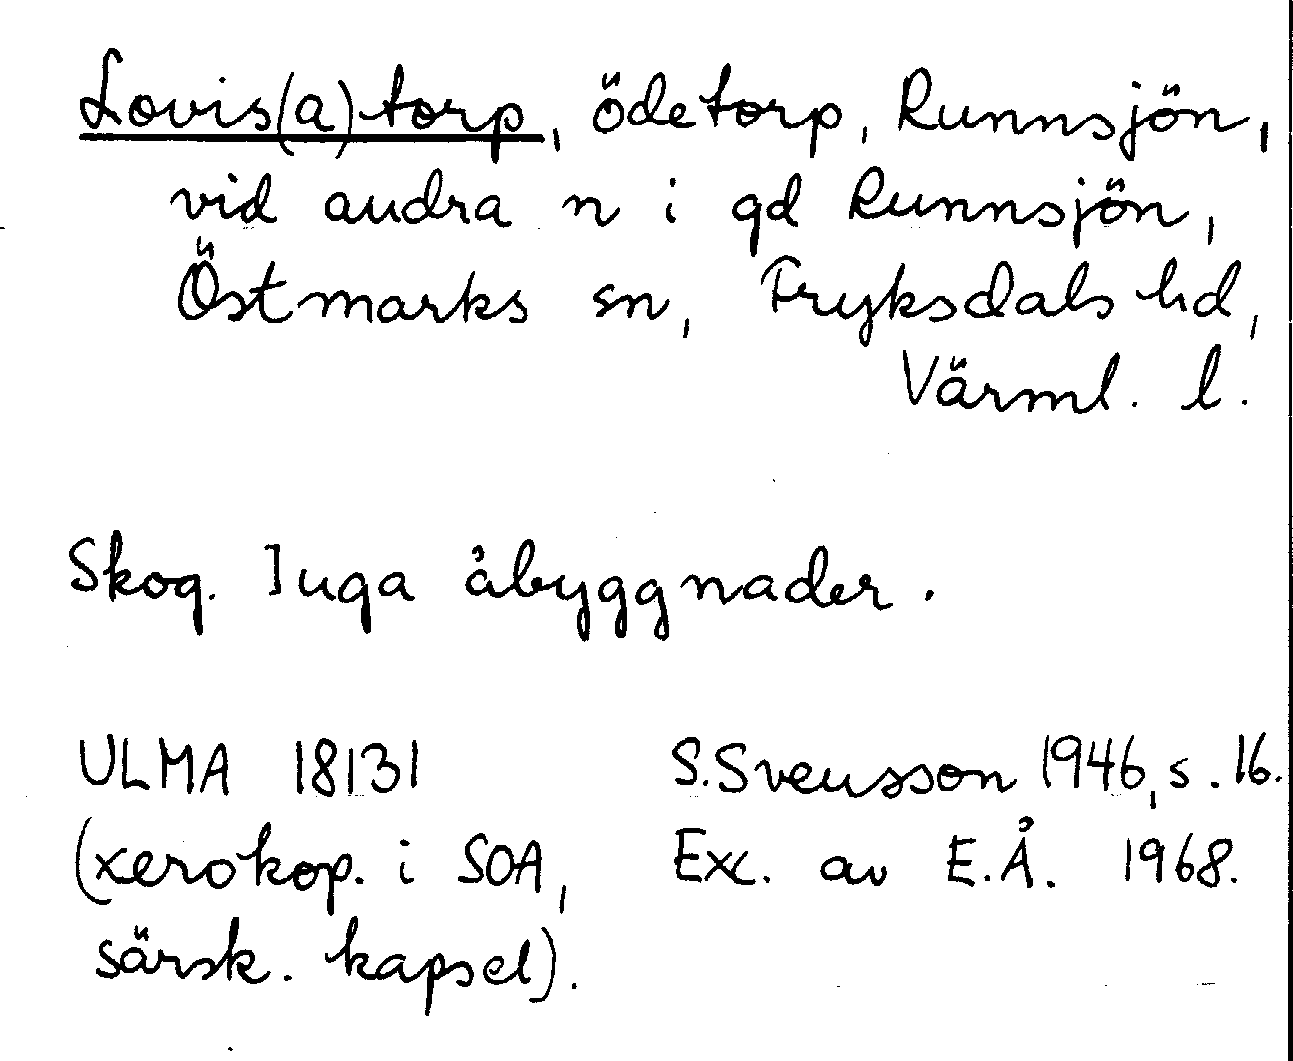 Lovis(a)torp, ödetorp, Runnsjön,
vid andra n i gd Runnsjön,
Östmarks sn, Fryksdals hd,
Värml. l.
Skog. Inga åbyggnader.
ULMA 18131
(xerokop. i SOA,
särsk. kapsel).
S. Svensson 1946, s. 16.
Ex. av E.Å. 1968.